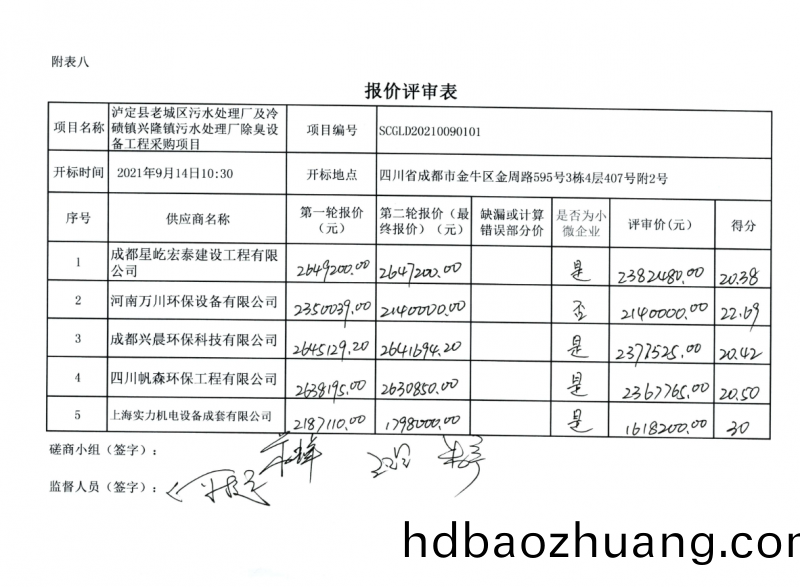 附表八
报价评审表
项目名称 泸定县老城区污水处理厂及冷碛镇兴隆镇污水处理厂除臭设备工程采购项目 项目编号 SCGLD20210090101
开标时间 2021年9月14日10:30 开标地点 四川省成都市金牛区金周路595号3栋4层407号附2号
序号 供应商名称 第一轮报价（元） 第二轮报价（最终报价）（元） 缺漏或计算错误部分价 是否为小微企业 评审价(元) 得分
1 成都星屹宏泰建设工程有限公司 2649200.00 2647200.00 是 2382480.00 20.38
2 河南万川环保设备有限公司 2350039.00 2140000.00 否 2140000.00 22.69
3 成都兴晨环保科技有限公司 2645129.20 2641694.20 是 2377525.00 20.42
4 四川帆森环保工程有限公司 2638195.00 2630850.00 是 2367765.00 20.50
5 上海实力机电设备成套有限公司 2187110.00 1798000.00 是 1618200.00 30
磋商小组（签字）：
监督人员（签字）：
hdbaozhuang.com